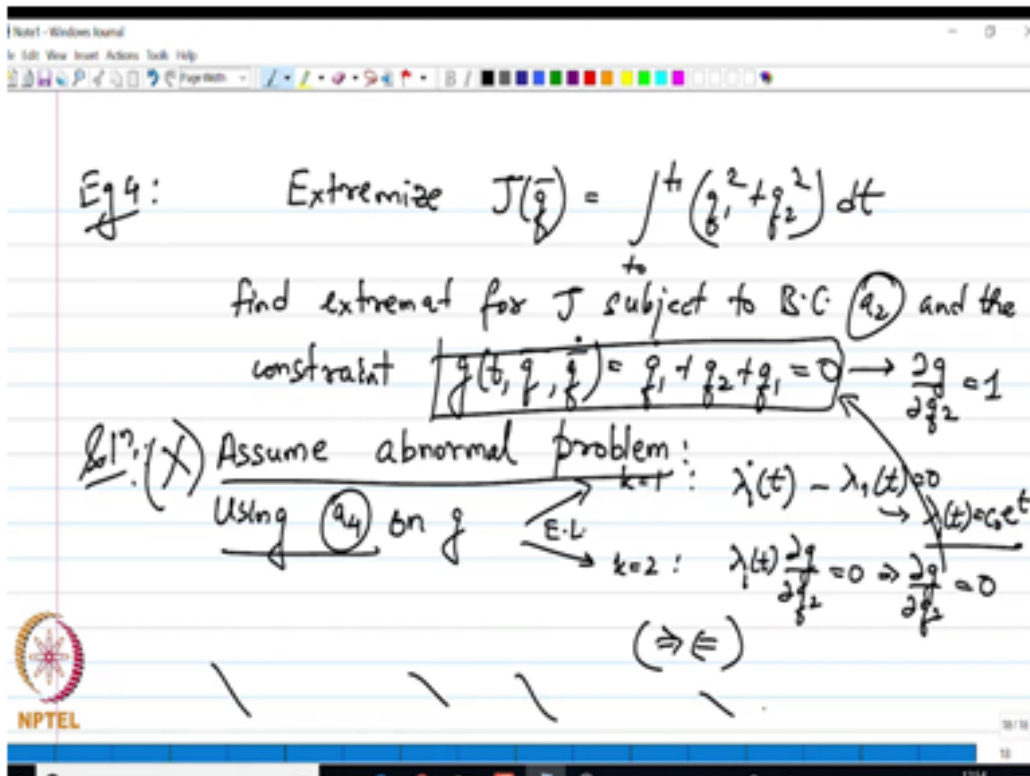 Note1 - Windows Journal
Edit View Insert Actions Tools Help
Page Width
Eg 4: Extremize J(q̄) = ∫_{t₀}^{t₁} (q₁² + q₂²) dt
find extremal for J subject to B.C. (a₂) and the
constraint g(t, q̄, q̄̇) = q̇₁ + q₂ + q₁ = 0 → ∂g/∂q₂ = 1
Solⁿ: (X) Assume abnormal problem:
k=1 : λ̇₁(t) − λ₁(t) = 0
→ λ₁(t) = c₀eᵗ
Using (a₄) on g E.L.
k=2 : λ₁(t) ∂g/∂q₂ = 0 ⇒ ∂g/∂q₂ = 0
(⇒⇐)
NPTEL
18/18
18